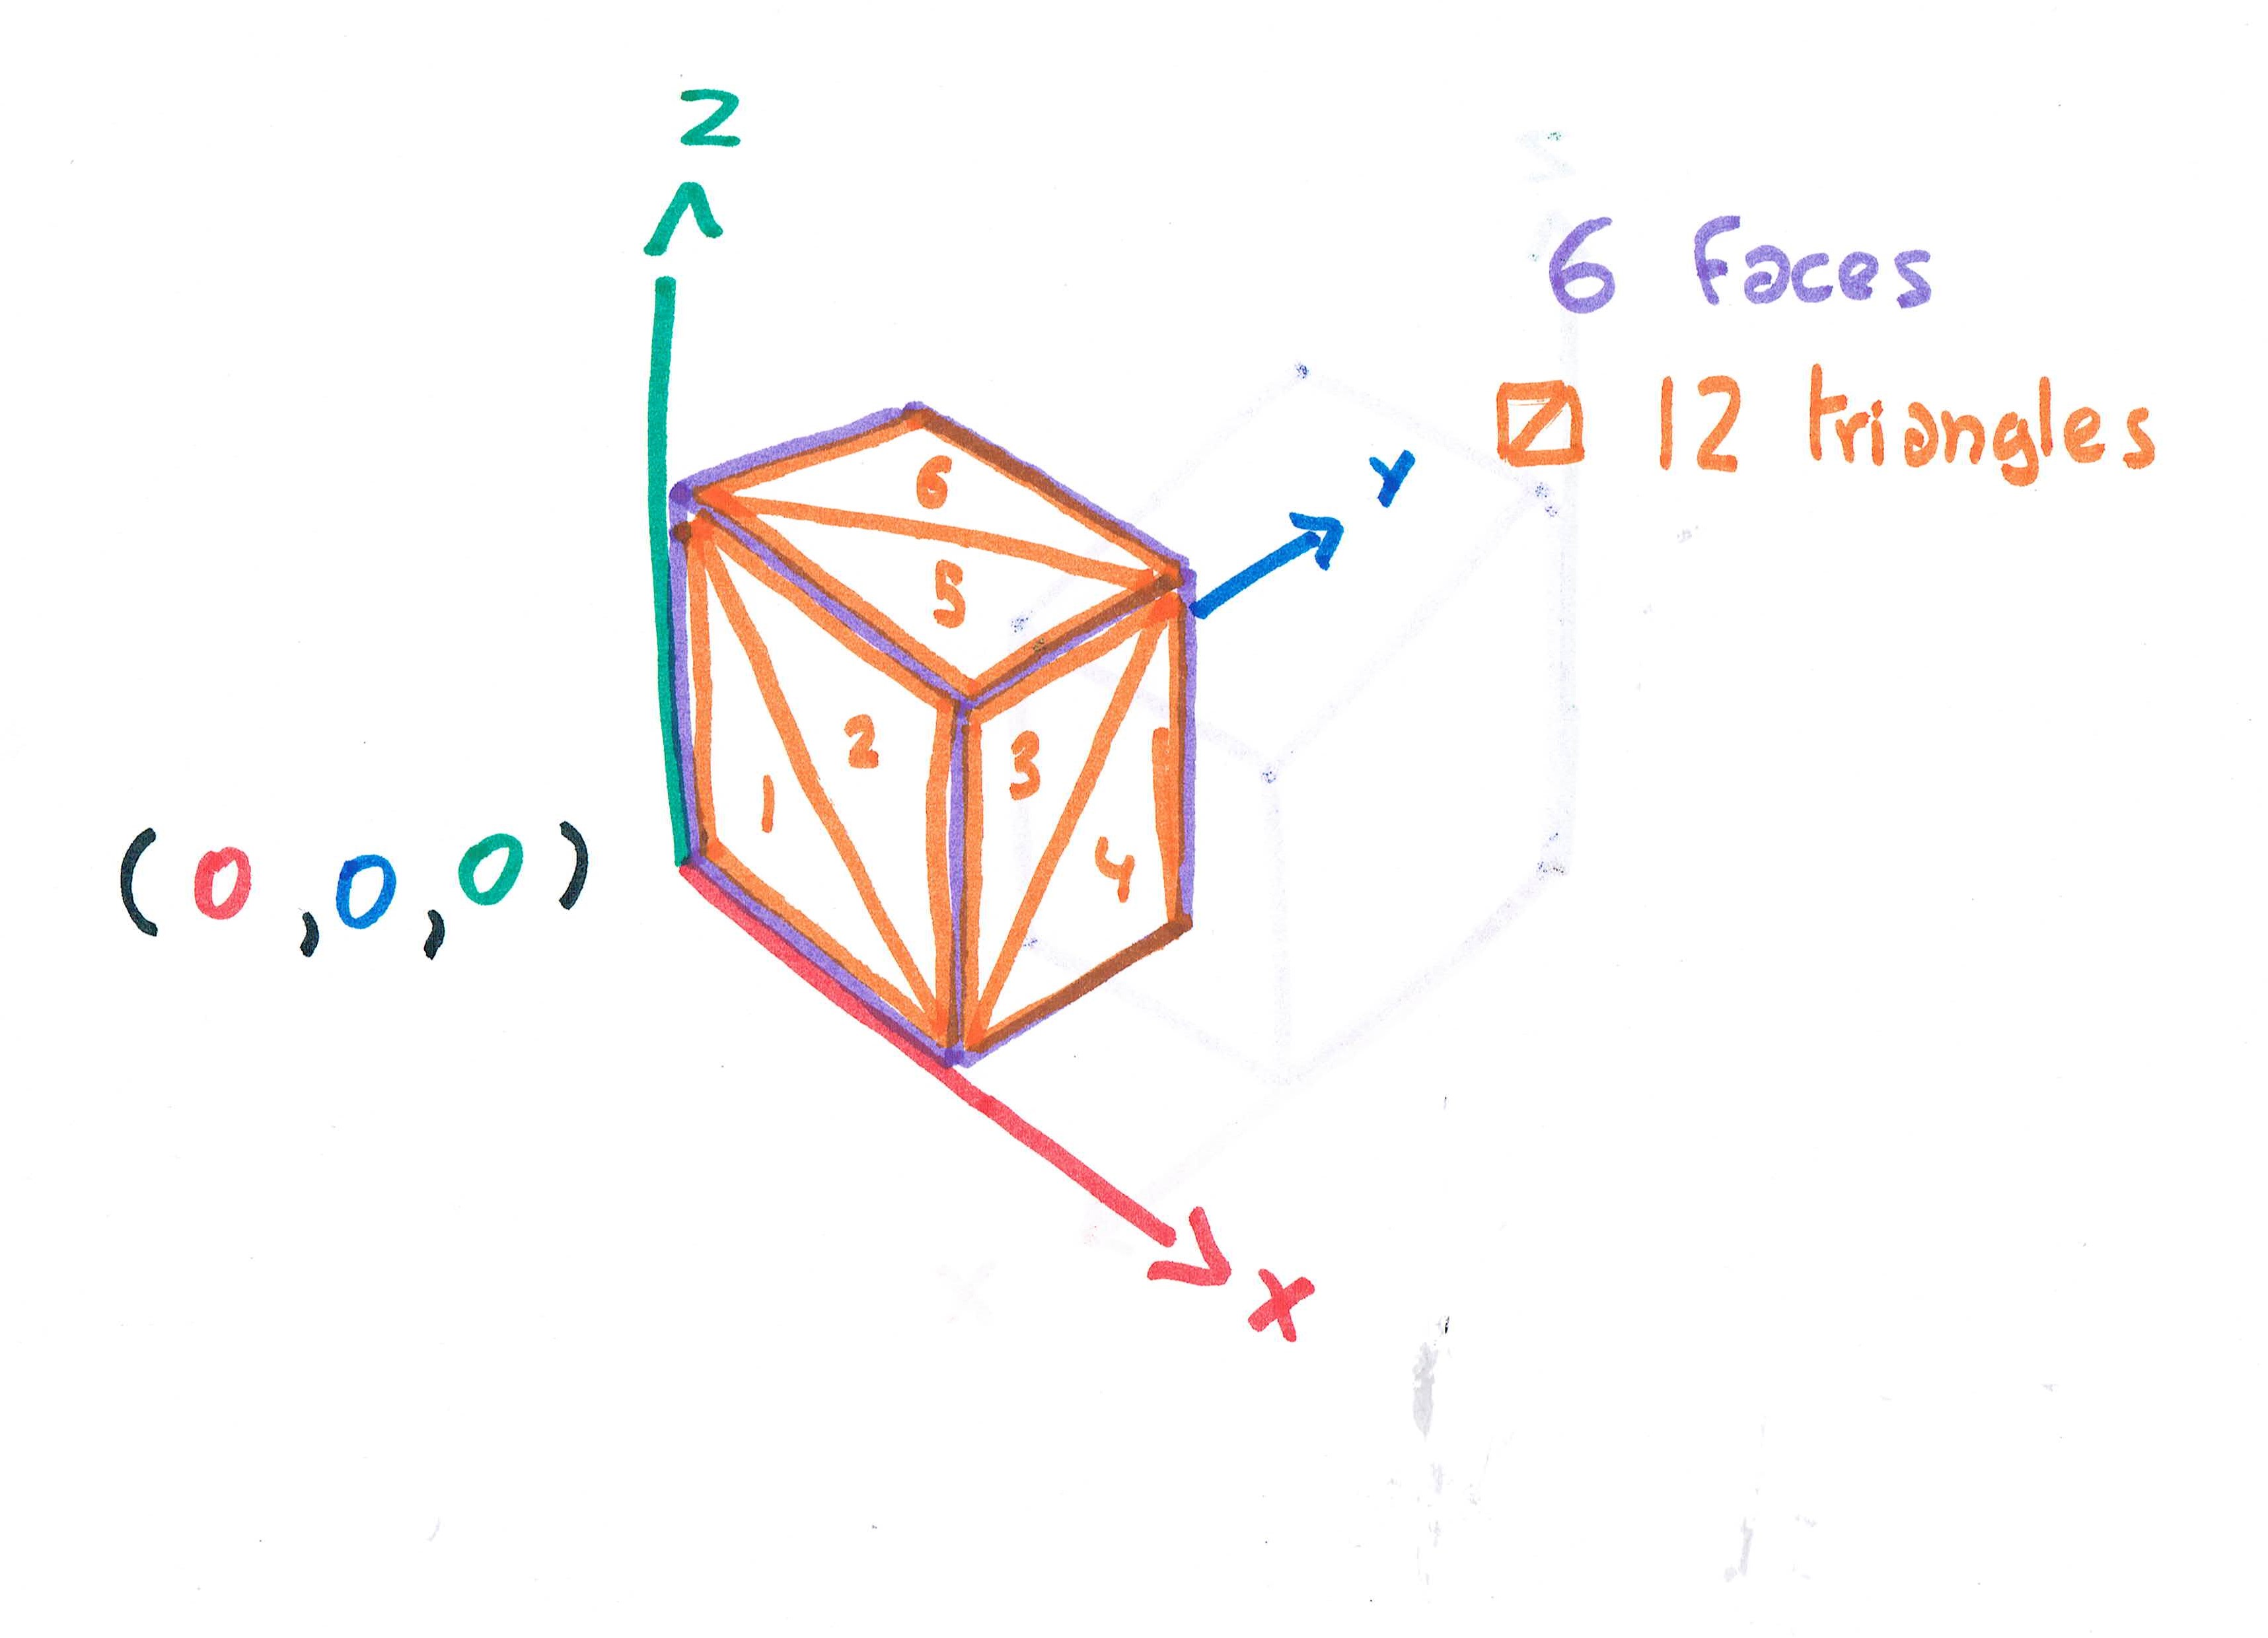 Z
6 faces
12 triangles
Y
6
5
2
3
1
4
(0,0,0)
X